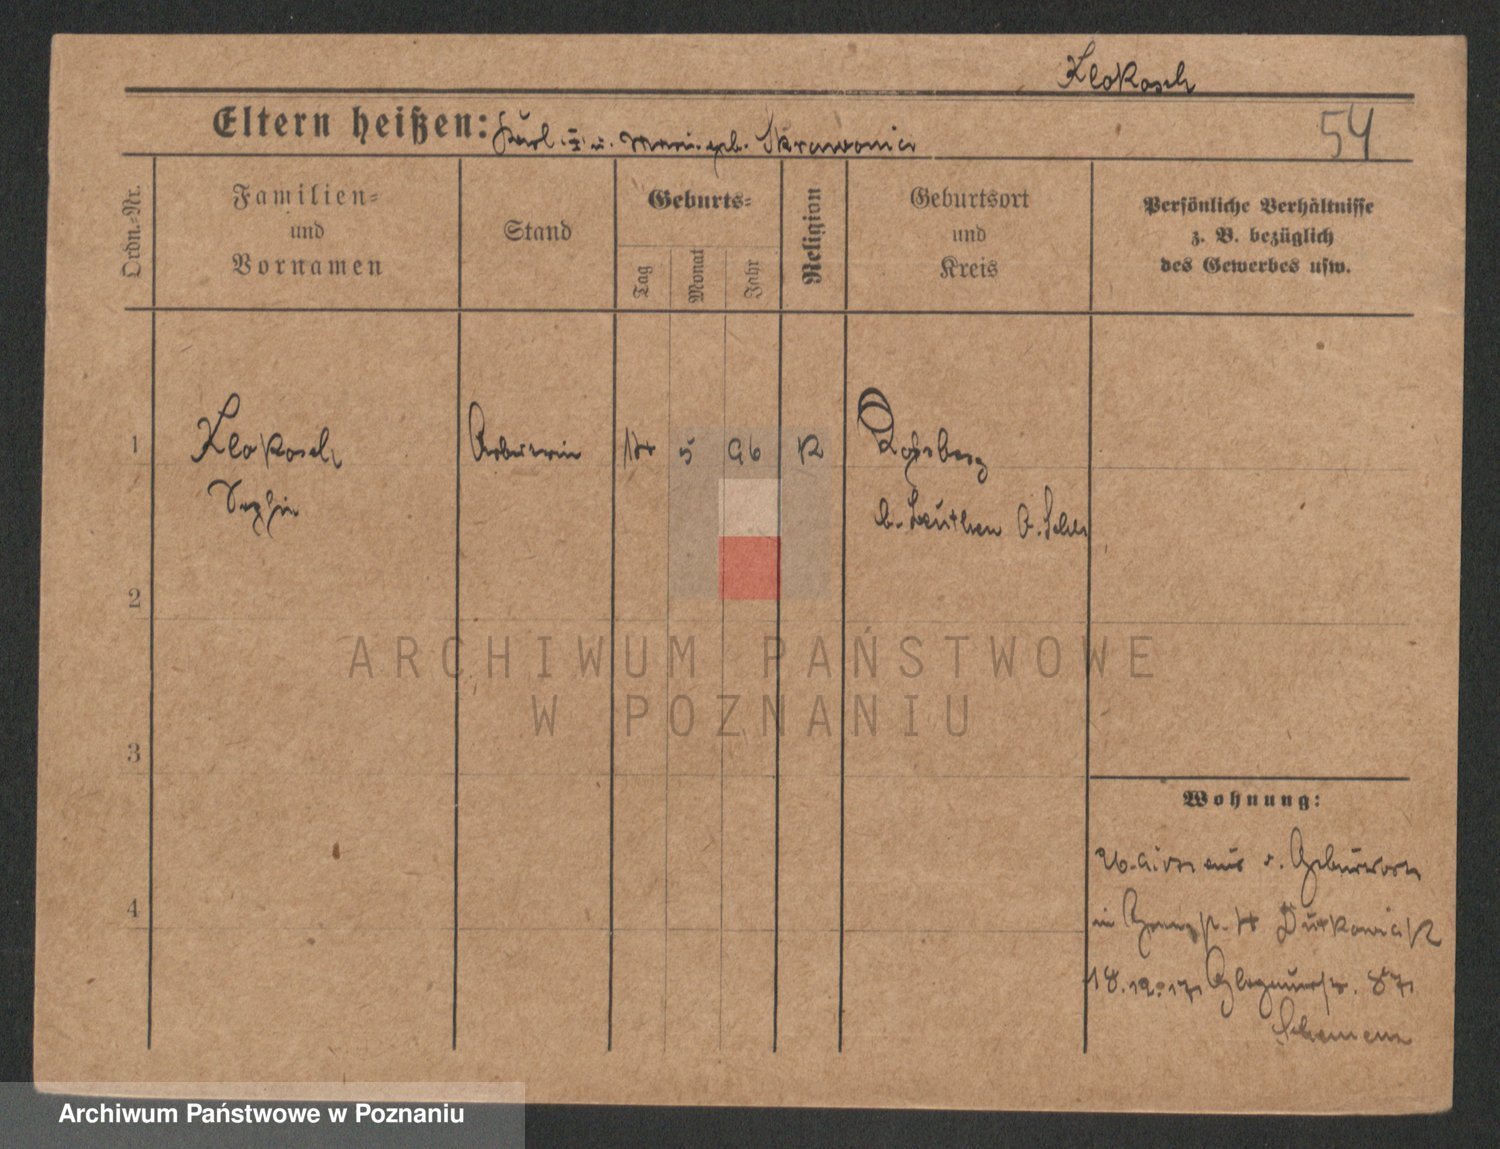 Klokosch
Eltern heißen: Karl u. Marie geb. Skrawonia
54
Ordn.-Nr.
Familien-
und
Vornamen
Stand
Geburts-
Tag
Monat
Jahr
Religion
Geburtsort
und
Kreis
Persönliche Verhältnisse
z. B. bezüglich
des Gewerbes usw.
1
Klokosch
Sophie
Arbeiterin
14
5
96
K
Roßberg
b. Beuthen O. Schl.
2
3
Wohnung:
aus d. Geburtsort
4
in
18.12.17
ARCHIWUM PAŃSTWOWE
W POZNANIU
Archiwum Państwowe w Poznaniu